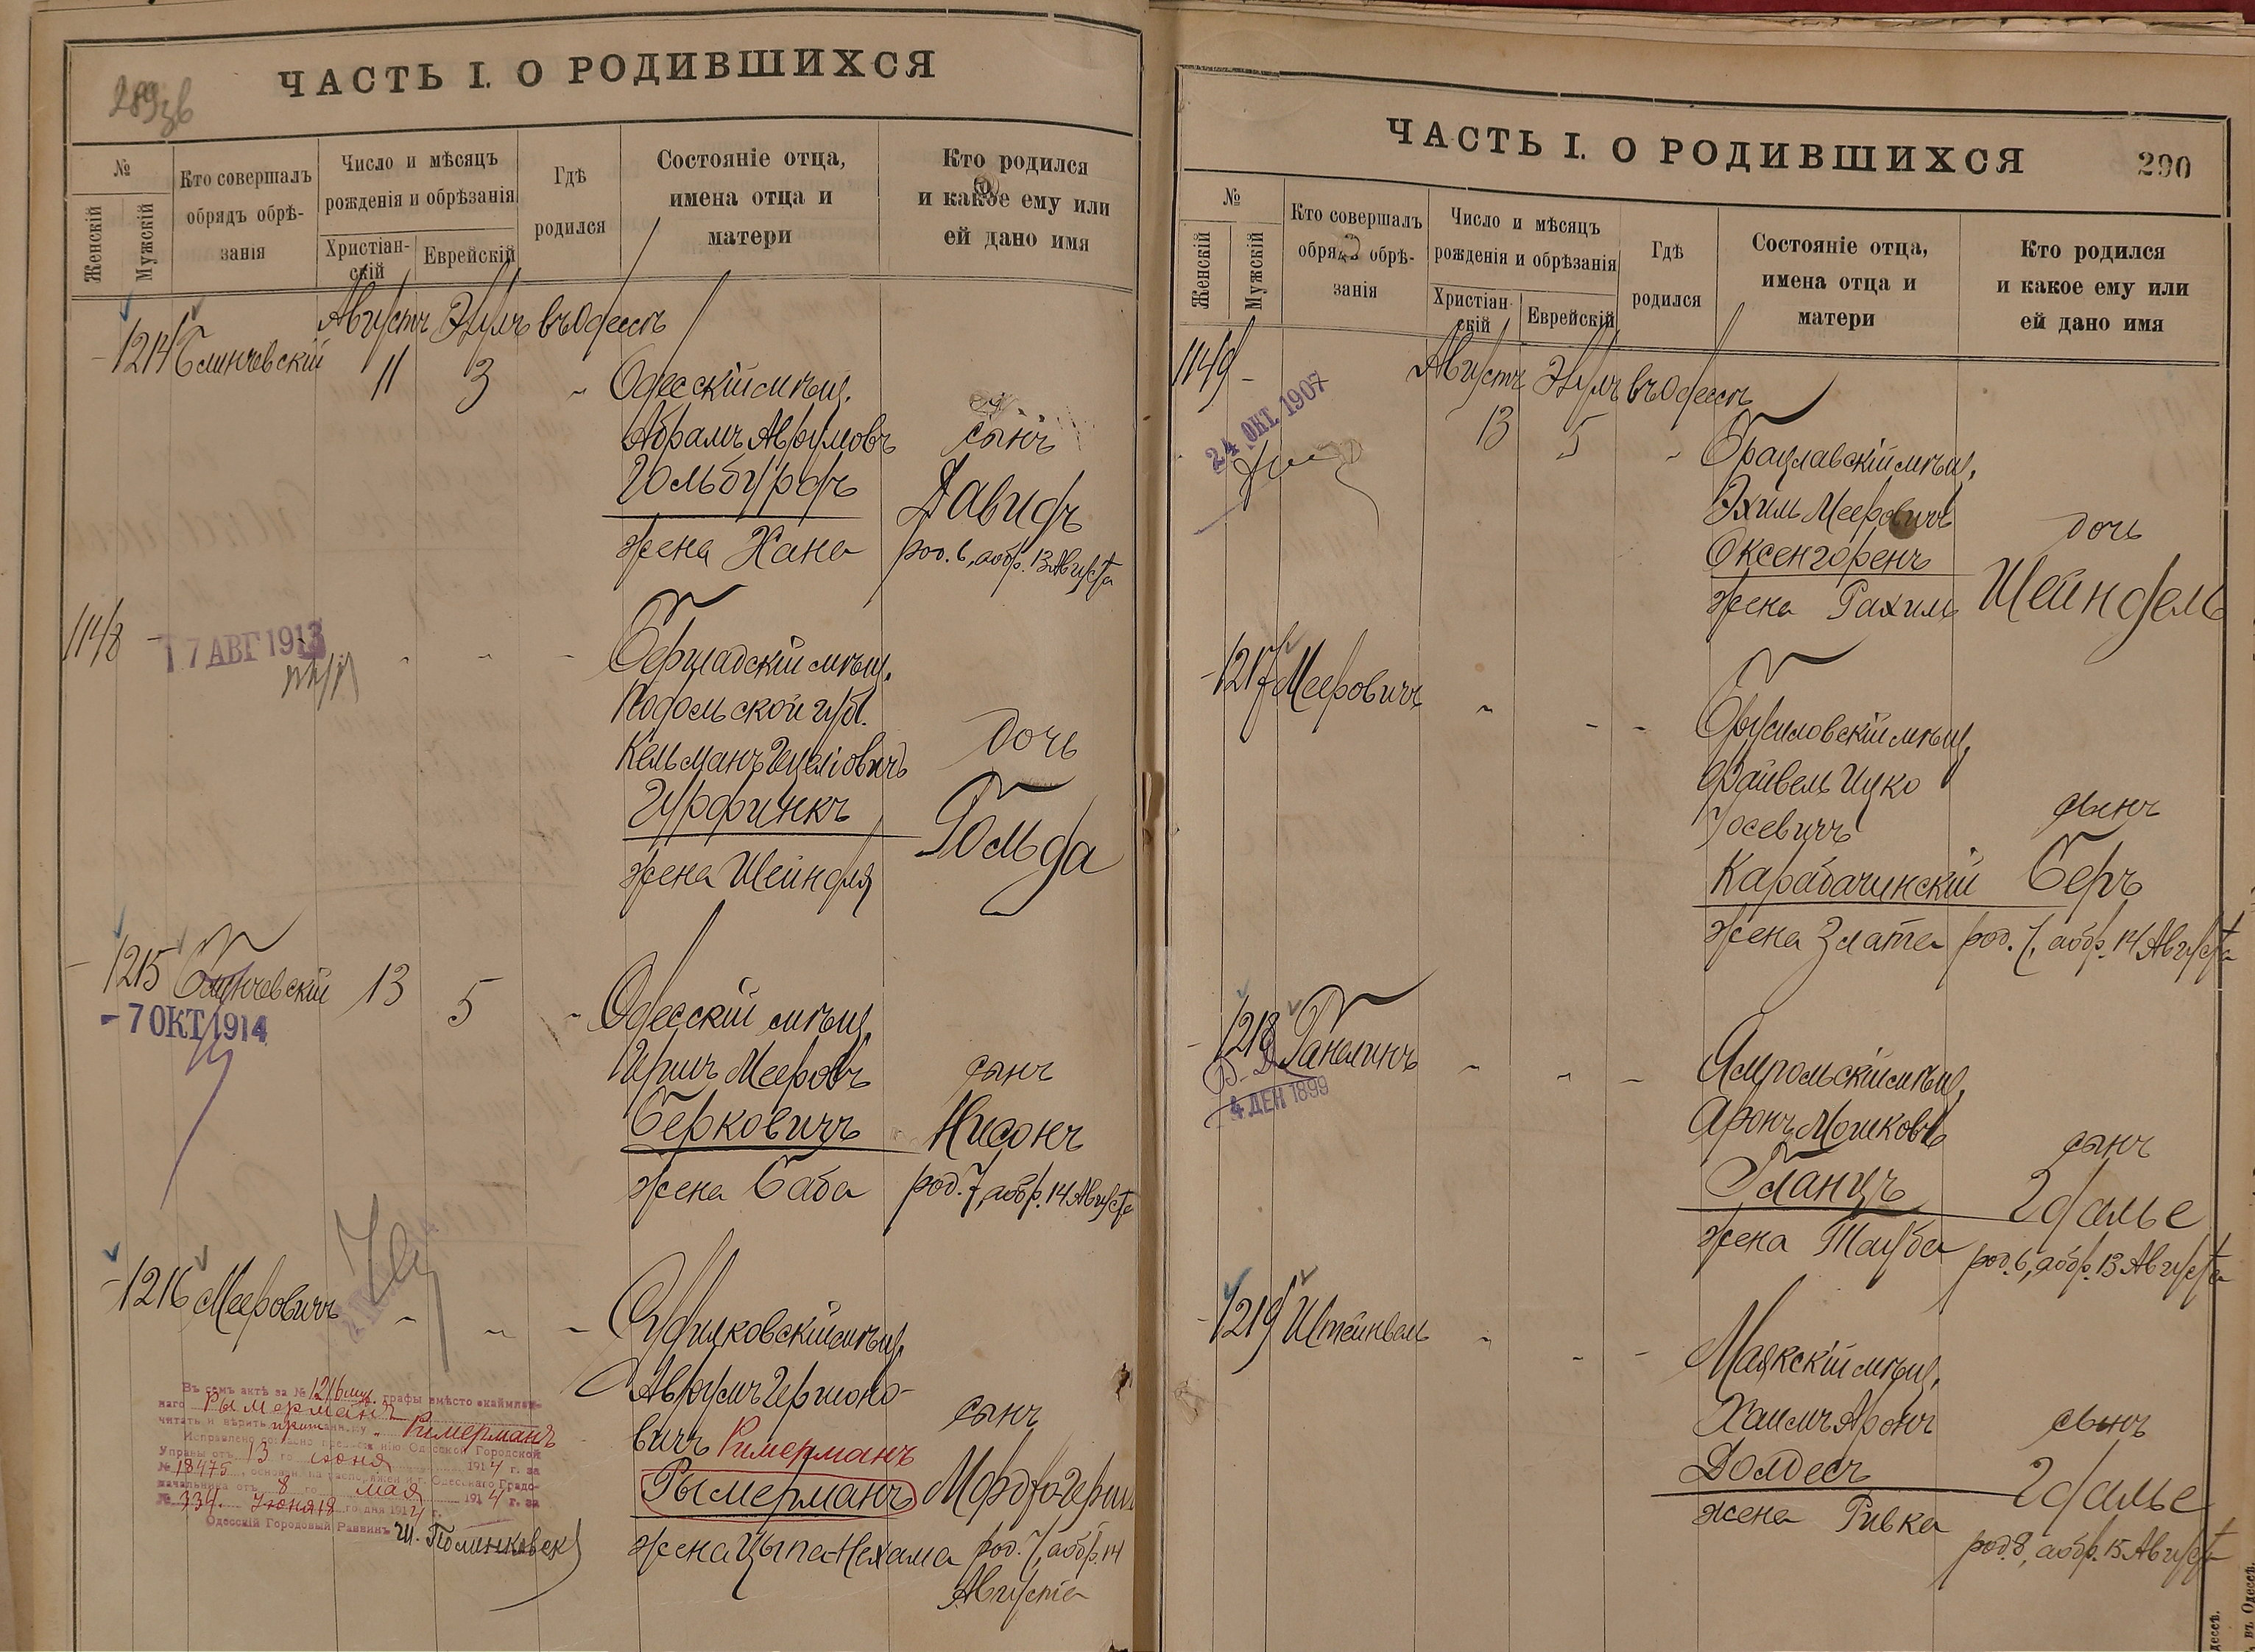 289 об
ЧАСТЬ I. О РОДИВШИХСЯ
№
Женскій
Мужскій
Кто совершалъ
обрядъ обрѣ-
занія
Число и мѣсяцъ
рожденія и обрѣзанія
Христіан-
скій
Еврейскій
Гдѣ
родился
Состояніе отца,
имена отца и
матери
Кто родился
и какое ему или
ей дано имя
Августъ Элулъ въ Одессѣ
1214 Блинчевскій 11 3 " Одесскій мѣщ.
Абрамъ Аврумовъ
Гольдурфъ
жена Хана
сынъ
Давидъ
род. 6, а обр. 13 Августа
1148 -
17 АВГ 1913
" " " Бершадскій мѣщ.
Подольской губ.
Кельманъ Гецеліовичъ
Гурфинкъ
жена Шейндля
дочь
Гольда
1215 Блинчевскій 13 5 " Одесскій мѣщ.
- 7 ОКТ 1914
Гершъ Мееровъ
Берковичъ
жена Баба
сынъ
Нисонъ
род. 7, а обр. 14 Августа
1216 Мееровичъ " " " Судилковскій мѣщ.
Аврумъ Гершоно-
вичъ Римерманъ
Рымерманъ
жена Цыпа-Нехама
сынъ
род. 7, а обр. 14
Августа
Въ семъ актѣ за № 1216 муж. графы вмѣсто окаймлен-
наго Рымерманъ
читать и вѣрить Римерманъ
Исправлено согласно предписанію Одесской Городской
Управы отъ 13 го іюня 1914 г. за
№ 18475, основан. на распоряженіи г. Одесскаго Градо-
начальника отъ 8 го мая 1914 г. за
№ 334. Іюня 18 го дня 1914 г.
Одесскій Городовый Раввинъ
ЧАСТЬ I. О РОДИВШИХСЯ
290
№
Женскій
Мужскій
Кто совершалъ
обрядъ обрѣ-
занія
Число и мѣсяцъ
рожденія и обрѣзанія
Христіан-
скій
Еврейскій
Гдѣ
родился
Состояніе отца,
имена отца и
матери
Кто родился
и какое ему или
ей дано имя
Августъ Элулъ въ Одессѣ
1149 - 13 5 " Брацлавскій мѣщ.
24 ОКТ. 1907
Эхиль Мееровичъ
Оксенгоренъ
жена Рахиль
дочь
Шейндель
1217 Мееровичъ " " " Брусиловскій мѣщ.
Файвель Ицко
Іосевичъ
Карабачинскій
жена Злата
сынъ
Беръ
род. 7, а обр. 14 Августа
1218 Ганелинъ " " " Ямпольскій мѣщ.
4 ДЕК 1899
Аронъ Мошковъ
Гланцъ
жена Тауба
сынъ
Гдалье
род. 6, а обр. 13 Августа
1219 Штейнваль " " " Маякскій мѣщ.
Хаимъ Аронъ
Долдесъ
жена Ривка
сынъ
Гдалье
род. 8, а обр. 15 Августа